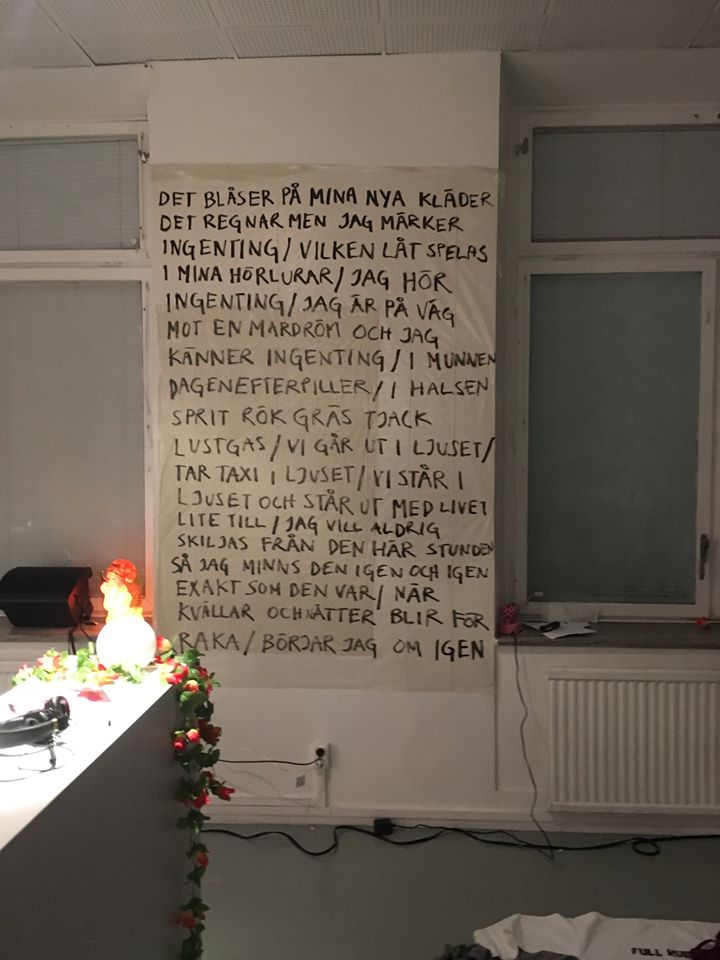 DET BLÅSER PÅ MINA NYA KLÄDER
DET REGNAR MEN JAG MÄRKER
INGENTING/VILKEN LÅT SPELAS
I MINA HÖRLURAR/JAG HÖR
INGENTING/JAG ÄR PÅ VÄG
MOT EN MARDRÖM OCH JAG
KÄNNER INGENTING/I MUNNEN
DAGENEFTERPILLER/I HALSEN
SPRIT RÖK GRÄS TJACK
LUSTGAS/VI GÅR UT I LJUSET/
TAR TAXI I LJUSET/VI STÅR I
LJUSET OCH STÅR UT MED LIVET
LITE TILL/JAG VILL ALDRIG
SKILJAS FRÅN DEN HÄR STUNDEN
SÅ JAG MINNS DEN IGEN OCH IGEN
EXAKT SOM DEN VAR/NÄR
KVÄLLAR OCH NÄTTER BLIR FÖR
RAKA/BÖRJAR JAG OM IGEN
FULL